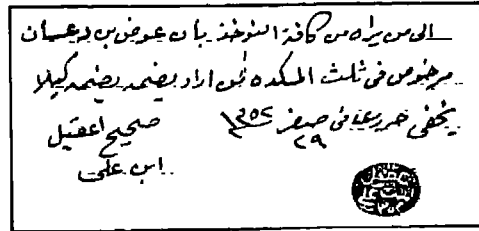 الى من يراه من كافة النوخذ بان عوض بن دعسان
مرخوص في ثلث السكده فمن اراد يضمه يضمه كيلا
يخفى حرر عنا في صفر ١٣٥٢
٢٩
صحيح اعقيل
ابن علي